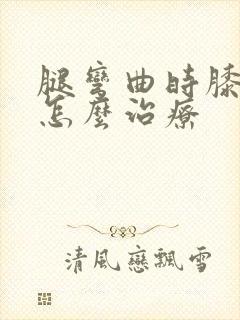 腿彎曲時膝
怎麼治療
清風戀飄雪